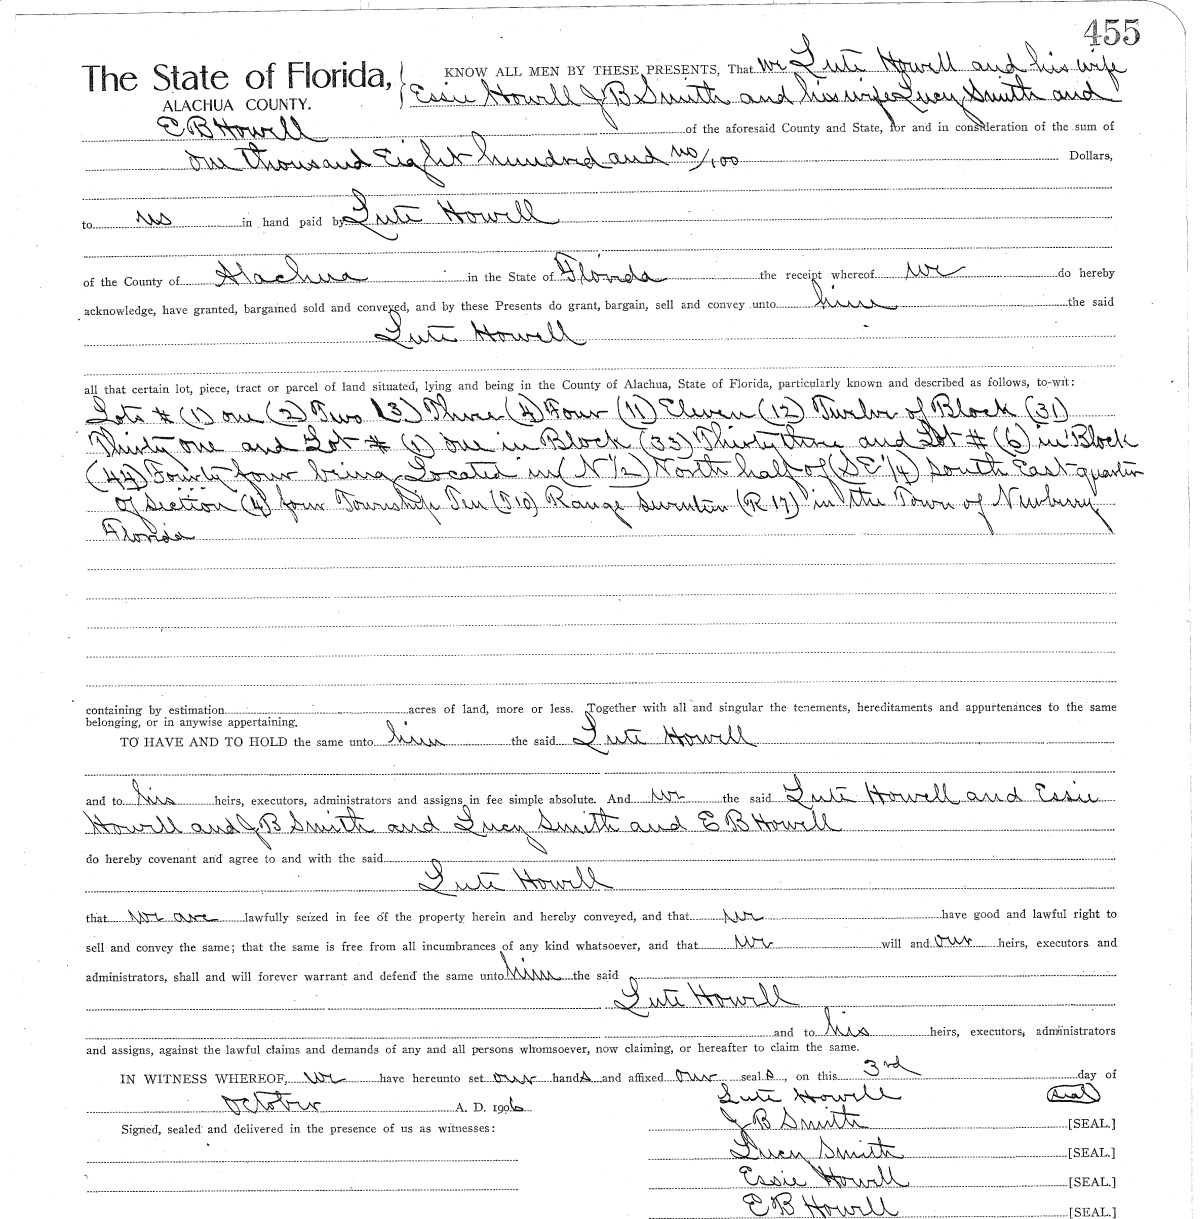 455
The State of Florida, KNOW ALL MEN BY THESE PRESENTS, That we Lute Howell and his wife
ALACHUA COUNTY. Essie Howell J B Smith and his wife Lucy Smith and
E B Howell of the aforesaid County and State, for and in consideration of the sum of
one thousand Eight hundred and no/100 Dollars,
to us in hand paid by Lute Howell
of the County of Alachua in the State of Florida the receipt whereof we do hereby
acknowledge, have granted, bargained sold and conveyed, and by these Presents do grant, bargain, sell and convey unto him the said
Lute Howell
all that certain lot, piece, tract or parcel of land situated, lying and being in the County of Alachua, State of Florida, particularly known and described as follows, to-wit:
Lots # (1) one (2) Two (3) Three (4) Four (11) Eleven (12) Twelve of Block (31)
Thirty one and Lot # (1) one in Block (33) Thirty three and Lot # (6) in Block
(44) Fourty four being Located in (N 1/2) North half of (S E 1/4) South East quarter
of Section (4) four Township Ten (T10) Range Seventeen (R 17) in the Town of Newberry
Florida
containing by estimation acres of land, more or less. Together with all and singular the tenements, hereditaments and appurtenances to the same
belonging, or in anywise appertaining.
TO HAVE AND TO HOLD the same unto him the said Lute Howell
and to his heirs, executors, administrators and assigns in fee simple absolute. And we the said Lute Howell and Essie
Howell and J B Smith and Lucy Smith and E B Howell
do hereby covenant and agree to and with the said
Lute Howell
that we are lawfully seized in fee of the property herein and hereby conveyed, and that we have good and lawful right to
sell and convey the same; that the same is free from all incumbrances of any kind whatsoever, and that we will and our heirs, executors and
administrators, shall and will forever warrant and defend the same unto him the said
Lute Howell
and to his heirs, executors, administrators
and assigns, against the lawful claims and demands of any and all persons whomsoever, now claiming, or hereafter to claim the same.
IN WITNESS WHEREOF, we have hereunto set our hands and affixed our seals, on this 3rd day of
October A. D. 1906 Lute Howell (seal)
Signed, sealed and delivered in the presence of us as witnesses: J B Smith [SEAL.]
Lucy Smith [SEAL.]
Essie Howell [SEAL.]
E B Howell [SEAL.]